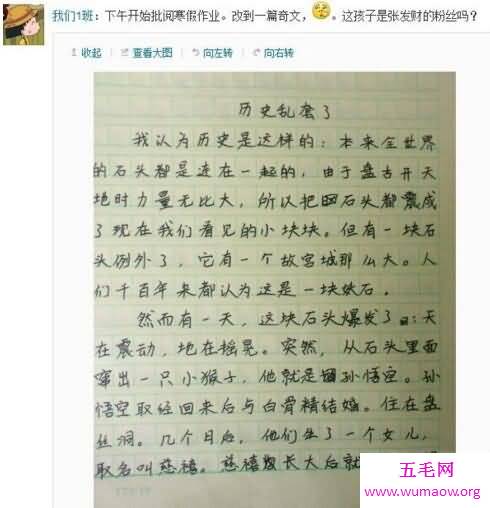 我们1班：下午开始批阅寒假作业。改到一篇奇文，。这孩子是张发财的粉丝吗？
收起 | 查看大图 向左转 向右转
历史乱套了
我认为历史是这样的：本来全世界
的石头都是连在一起的，由于盘古开天
地时力量无比大，所以把石头都震成
了现在我们看见的小块块。但有一块石
头例外了，它有一个故宫城那么大。人
们千百年来都认为这是一块妖石。
然而有一天，这块石头爆发了：天
在震动，地在摇晃。突然，从石头里面
窜出一只小猴子，他就是孙悟空。孙
悟空取经回来后与白骨精结婚。住在盘
丝洞。几个月后，他们生了一个女儿，
取名叫慈禧。慈禧长大后就
五毛网
www.wumaow.org